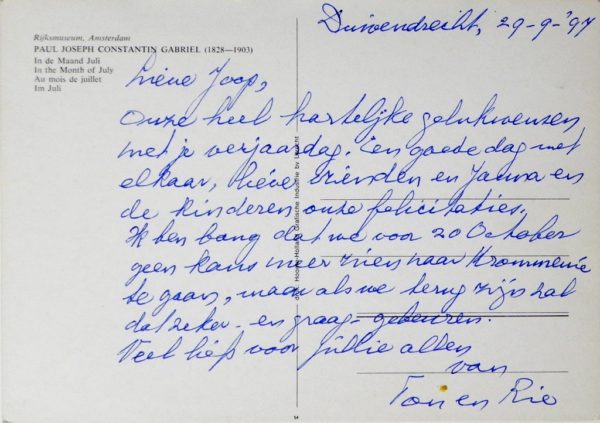 Duivendrecht, 29-9-'97
Rijksmuseum, Amsterdam
PAUL JOSEPH CONSTANTIN GABRIEL (1828—1903)
In de Maand Juli
In the Month of July
Au mois de juillet
Im Juli
Lieve Joop,
Onze heel hartelijke gelukwensen
met je verjaardag. Een goede dag met
elkaar, lieve vrienden en Janna en
de kinderen onze felicitaties.
Ik ben bang dat we voor 20 October
geen kans meer zien naar Krommenie
te gaan, maar als we terug zijn zal
dat zeker - en graag - gebeuren.
Veel liefs voor jullie allen
van
Ton en Rie
Hooiberg-Holland Grafische Industrie bv